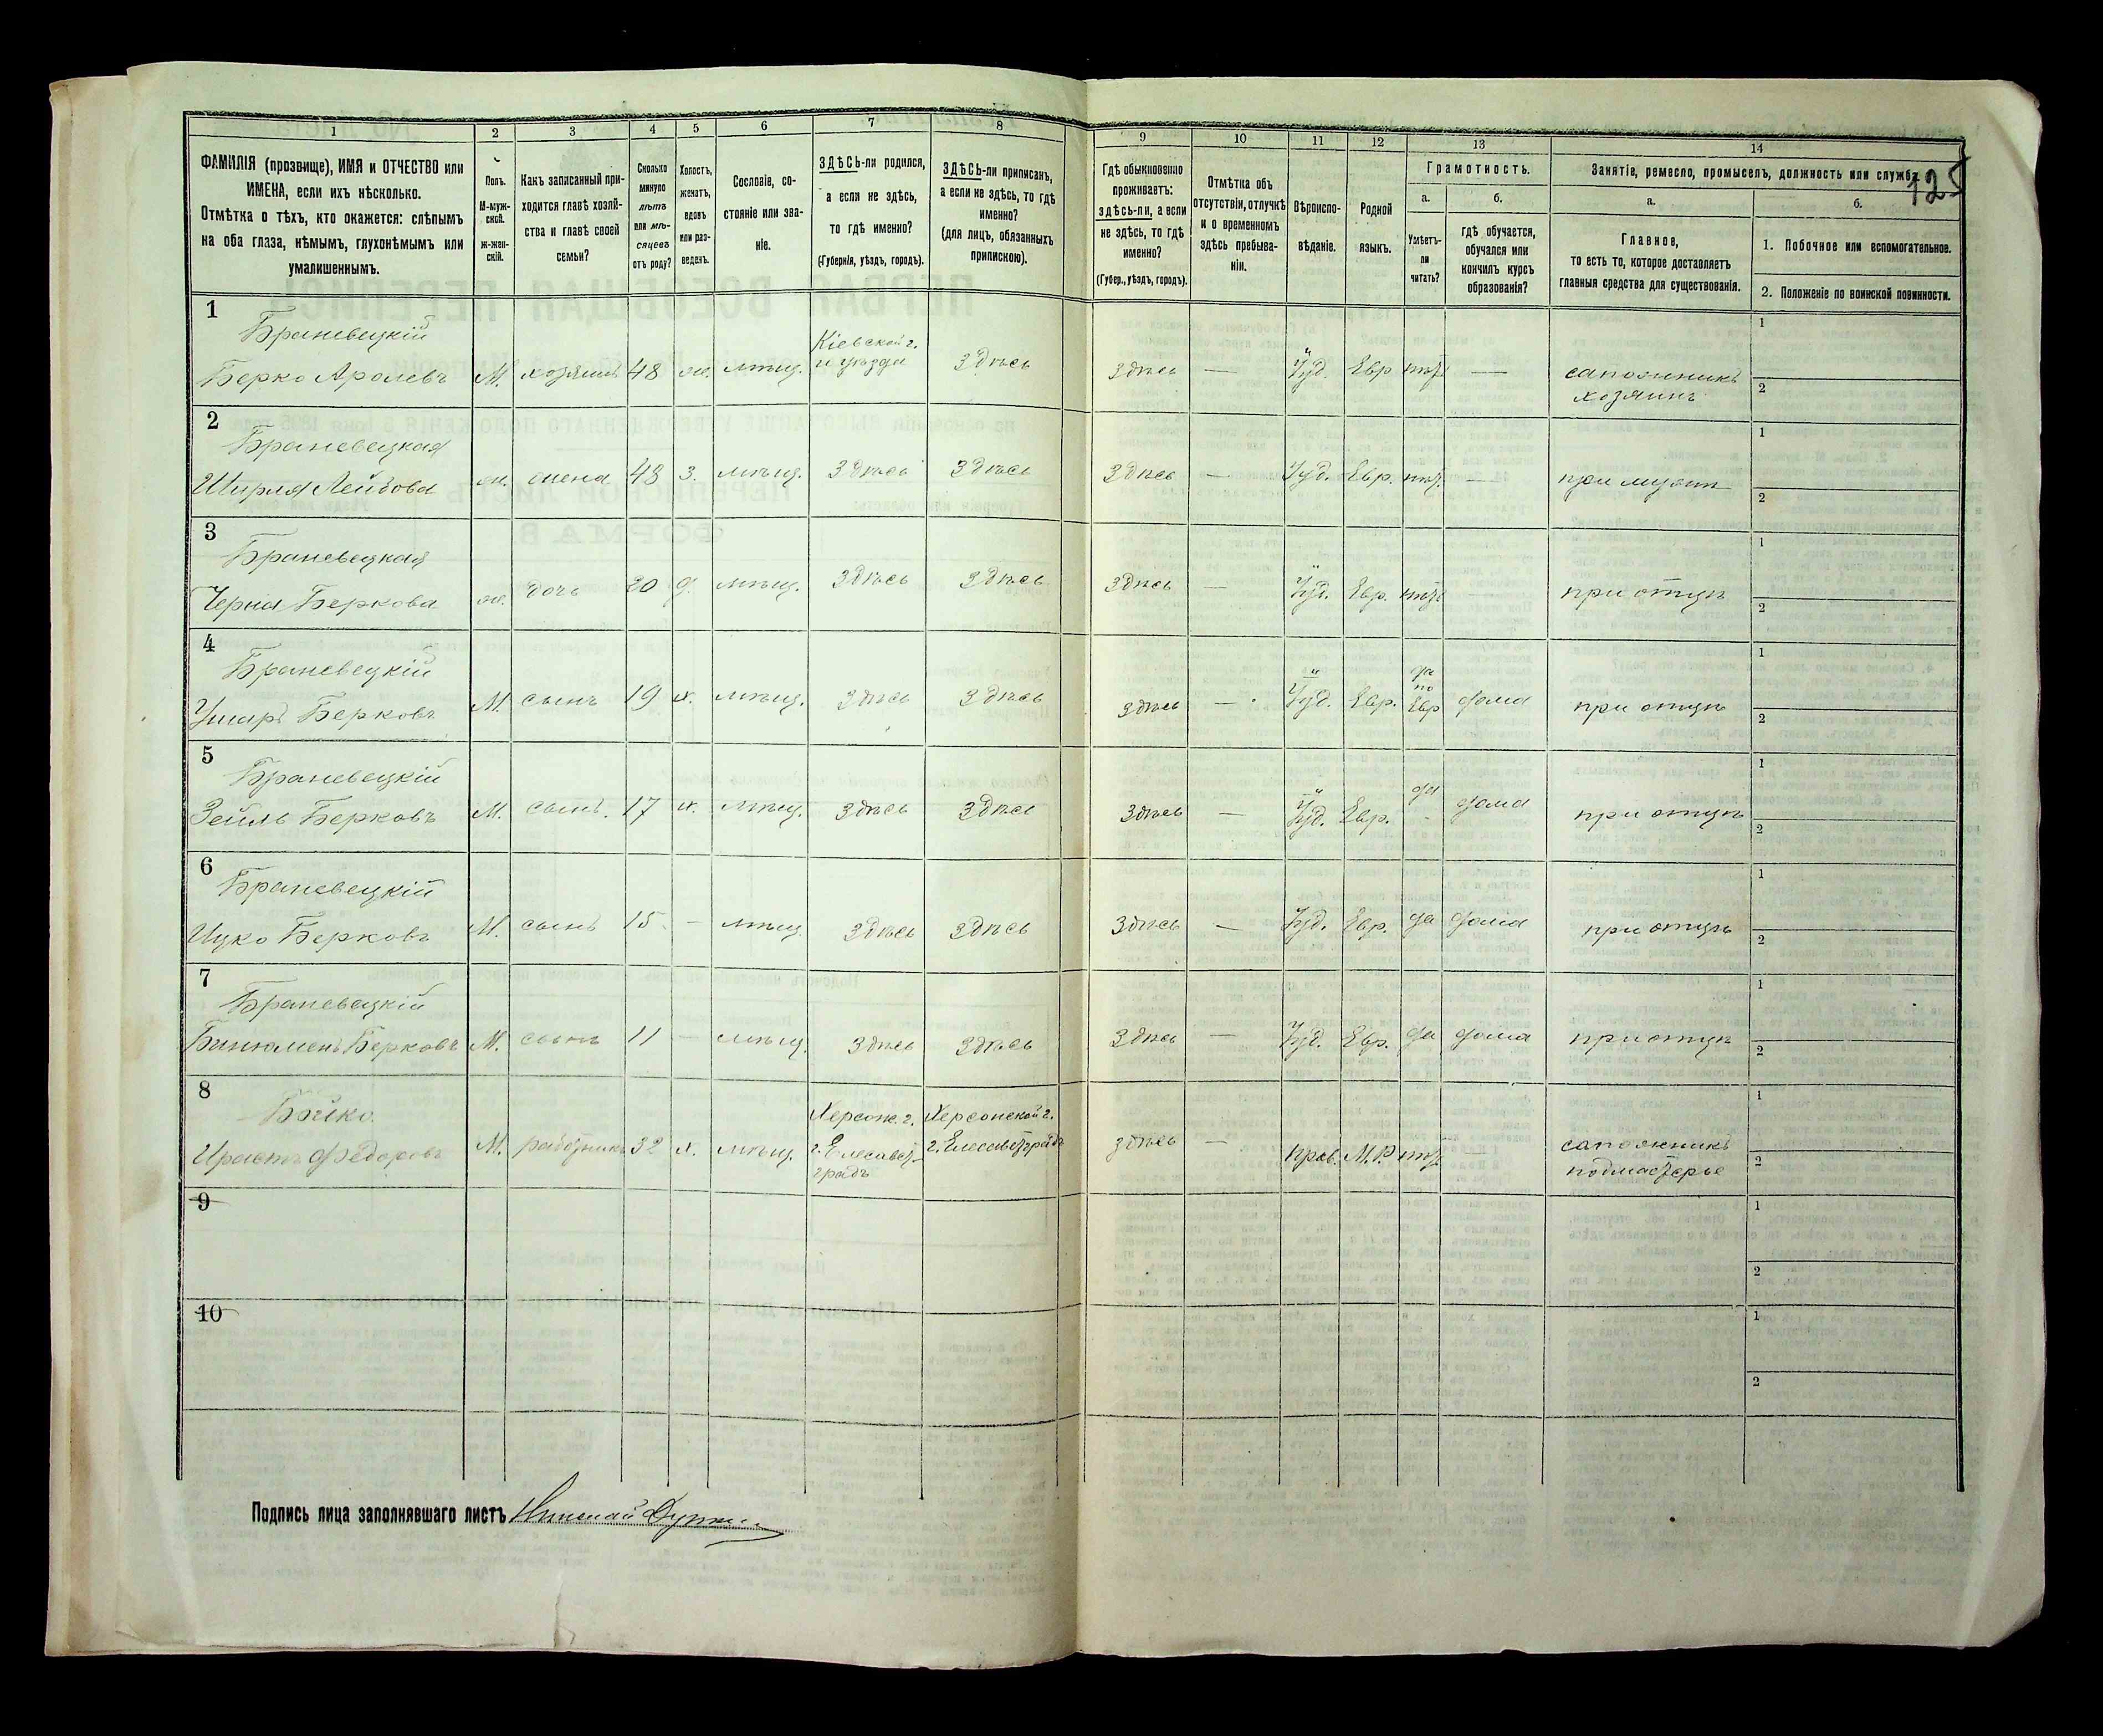 125
1 2 3 4 5 6 7 8 9 10 11 12 13 14
ФАМИЛІЯ (прозвище), ИМЯ и ОТЧЕСТВО или
ИМЕНА, если ихъ нѣсколько.
Отмѣтка о тѣхъ, кто окажется: слѣпымъ
на оба глаза, нѣмымъ, глухонѣмымъ или
умалишеннымъ.
Полъ.
М-муж-
ской.
ж-жен-
скій.
Какъ записанный при-
ходится главѣ хозяй-
ства и главѣ своей
семьи?
Сколько
минуло
лѣтъ
или мѣ-
сяцевъ
отъ роду?
Холостъ,
женатъ,
вдовъ
или раз-
веденъ.
Сословіе, со-
стояніе или зва-
ніе.
ЗДѢСЬ-ли родился,
а если не здѣсь,
то гдѣ именно?
(Губернія, уѣздъ, городъ).
ЗДѢСЬ-ли приписанъ,
а если не здѣсь, то гдѣ
именно?
(для лицъ, обязанныхъ
припискою).
Гдѣ обыкновенно
проживаетъ:
здѣсь-ли, а если
не здѣсь, то гдѣ
именно?
(Губер., уѣздъ, городъ).
Отмѣтка объ
отсутствіи, отлучкѣ
и о временномъ
здѣсь пребыва-
ніи.
Вѣроиспо-
вѣданіе.
Родной
языкъ.
Грамотность.
а.
Умѣетъ-
ли
читать?
б.
гдѣ обучается,
обучался или
кончилъ курсъ
образованія?
Занятіе, ремесло, промыселъ, должность или служба.
а.
Главное,
то есть то, которое доставляетъ
главныя средства для существованія.
б.
1. Побочное или вспомогательное.
2. Положеніе по воинской повинности.
1
Браневецкій
Берко Ароновъ М. хозяинъ 48 ж. мѣщ. Кіевской г. и уѣзда здѣсь здѣсь — Іуд. Евр нѣт — сапожникъ
хозяинъ
1
2
2
Браневецкая
Ширля Лейбова ж. жена 48 з. мѣщ. здѣсь здѣсь здѣсь — Іуд. Евр. нѣт. — при мужѣ
1
2
3
Браневецкая
Черна Беркова ж. дочь 20 д. мѣщ. здѣсь здѣсь здѣсь — Іуд. Евр. нѣт — при отцѣ
1
2
4
Браневецкій
Умаръ Берковъ М. сынъ 19 х. мѣщ. здѣсь здѣсь здѣсь — Іуд. Евр. да по Евр дома при отцѣ
1
2
5
Браневецкій
Зейль Берковъ М. сынъ. 17 х. мѣщ. здѣсь здѣсь здѣсь — Іуд. Евр. да дома при отцѣ
1
2
6
Браневецкій
Ицко Берковъ М. сынъ 15 — мѣщ здѣсь здѣсь здѣсь — Іуд. Евр. да дома при отцѣ
1
2
7
Браневецкій
Бинюменъ Берковъ М. сынъ 11 — мѣщ. здѣсь здѣсь здѣсь — Іуд. Евр. да дома при отцѣ
1
2
8
Бойко.
Федоровъ М. работникъ 32 х. мѣщ. Херсон. г. г. Елесавет-градъ Херсонской г. г. Елесаветградъ здѣсь — Прав. М.Р. нѣт — сапожникъ
подмастерье
1
2
9
1
2
10
1
2
Подпись лица заполнявшаго листъ Николай